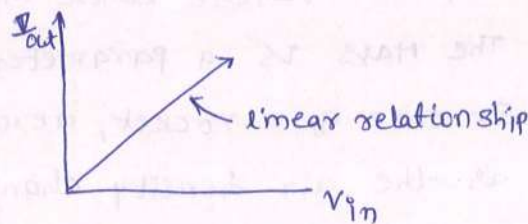 Vout
linear relationship
Vin